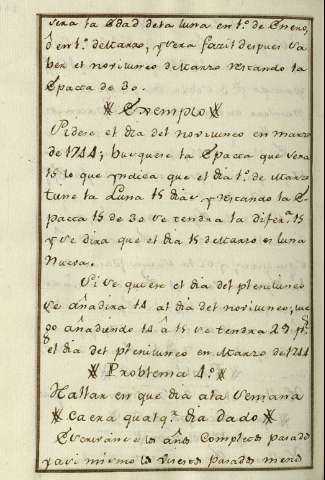 sera la Edad de la luna en 1º. de Enero,
ô en 1º. de Marzo, y sera facil despues sa
ber el novilunio de Marzo restando la
Epacta de 30.
Exemplo
Pidese el dia del novilunio en marzo
de 1744; busquese la Epacta que sera
15 lo que yndica que el dia 1º. de Marzo
tiene la Luna 15 dias y restando la E
pacta 15 de 30 se tendra la difer.ª 15
y se dira que el dia 15 de Marzo es luna
Nueva.
Si se quiere el dia del plenilunio
se añadira 14 al dia del novilunio; lue
go añadiendo 14 a 15 se tendra 29 p.ª
el dia del plenilunio en Marzo de 1744
Problema 4.º
Hallar en que dia de la Semana
caera qualq.r dia dado
Escrivanse los años completos pasados
y asi mismo los viciestos pasados menos